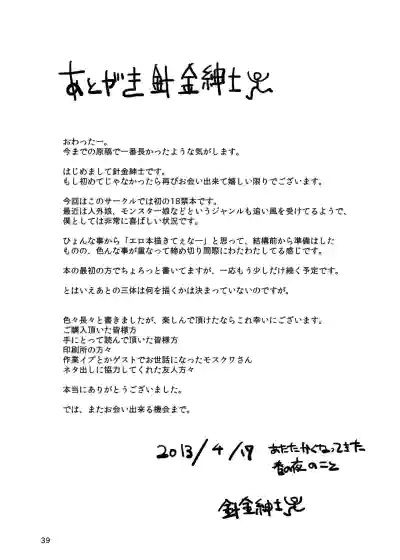 あとがき 針金紳士
おわったー。
今までの原稿で一番長かったような気がします。
はじめまして針金紳士です。
もし初めてじゃなかったら再びお会い出来て嬉しい限りでございます。
今回はこのサークルでは初の18禁本です。
最近は人外娘、モンスター娘などというジャンルも追い風を受けてるようで、
僕としては非常に喜ばしい状況です。
ひょんな事から「エロ本描きてぇなー」と思って、結構前から準備はした
ものの、色んな事が重なって締め切り間際にわたわたしてる感じです。
本の最初の方でちょろっと書いてますが、一応もう少しだけ続く予定です。
とはいえあとの三体は何を描くかは決まっていないのですが。
色々長々と書きましたが、楽しんで頂けたならこれ幸いにございます。
ご購入頂いた皆様方
手にとって読んで頂いた皆様方
印刷所の方々
作業イプとかゲストでお世話になったモスクワさん
ネタ出しに協力してくれた友人方々
本当にありがとうございました。
では、またお会い出来る機会まで。
2013/4/17 あたたかくなってきた
春の夜のこと
針金紳士
39